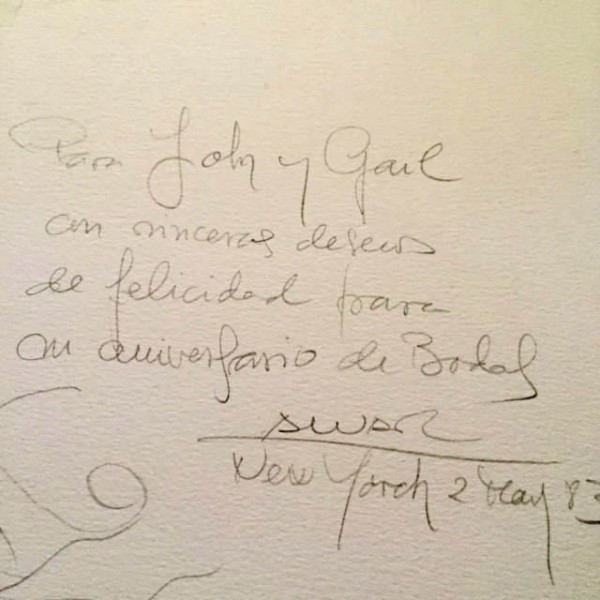 Para John y Gail
con sinceros deseos
de felicidad para
su aniversario de Bodas
New Yorck 2 May 83